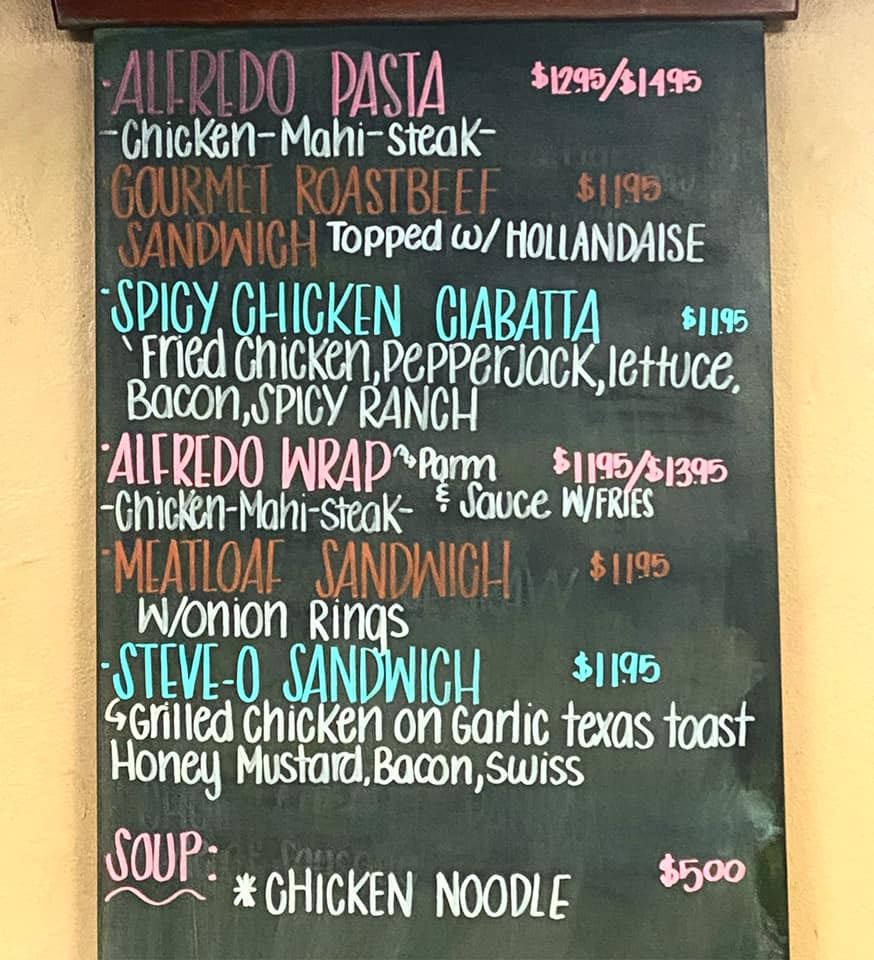 ·ALFREDO PASTA $12.95/$14.95
-Chicken-Mahi-steak-
·GOURMET ROASTBEEF $11.95
SANDWICH Topped w/ HOLLANDAISE
·SPICY CHICKEN CIABATTA $11.95
Fried Chicken, Pepperjack, lettuce,
Bacon, SPICY RANCH
·ALFREDO WRAP Parm $11.95/$13.95
-Chicken-Mahi-steak- & Sauce W/FRIES
·MEATLOAF SANDWICH $11.95
W/onion Rings
·STEVE-O SANDWICH $11.95
↳Grilled Chicken on Garlic texas toast
Honey Mustard, Bacon, Swiss
SOUP: $5.00
*CHICKEN NOODLE